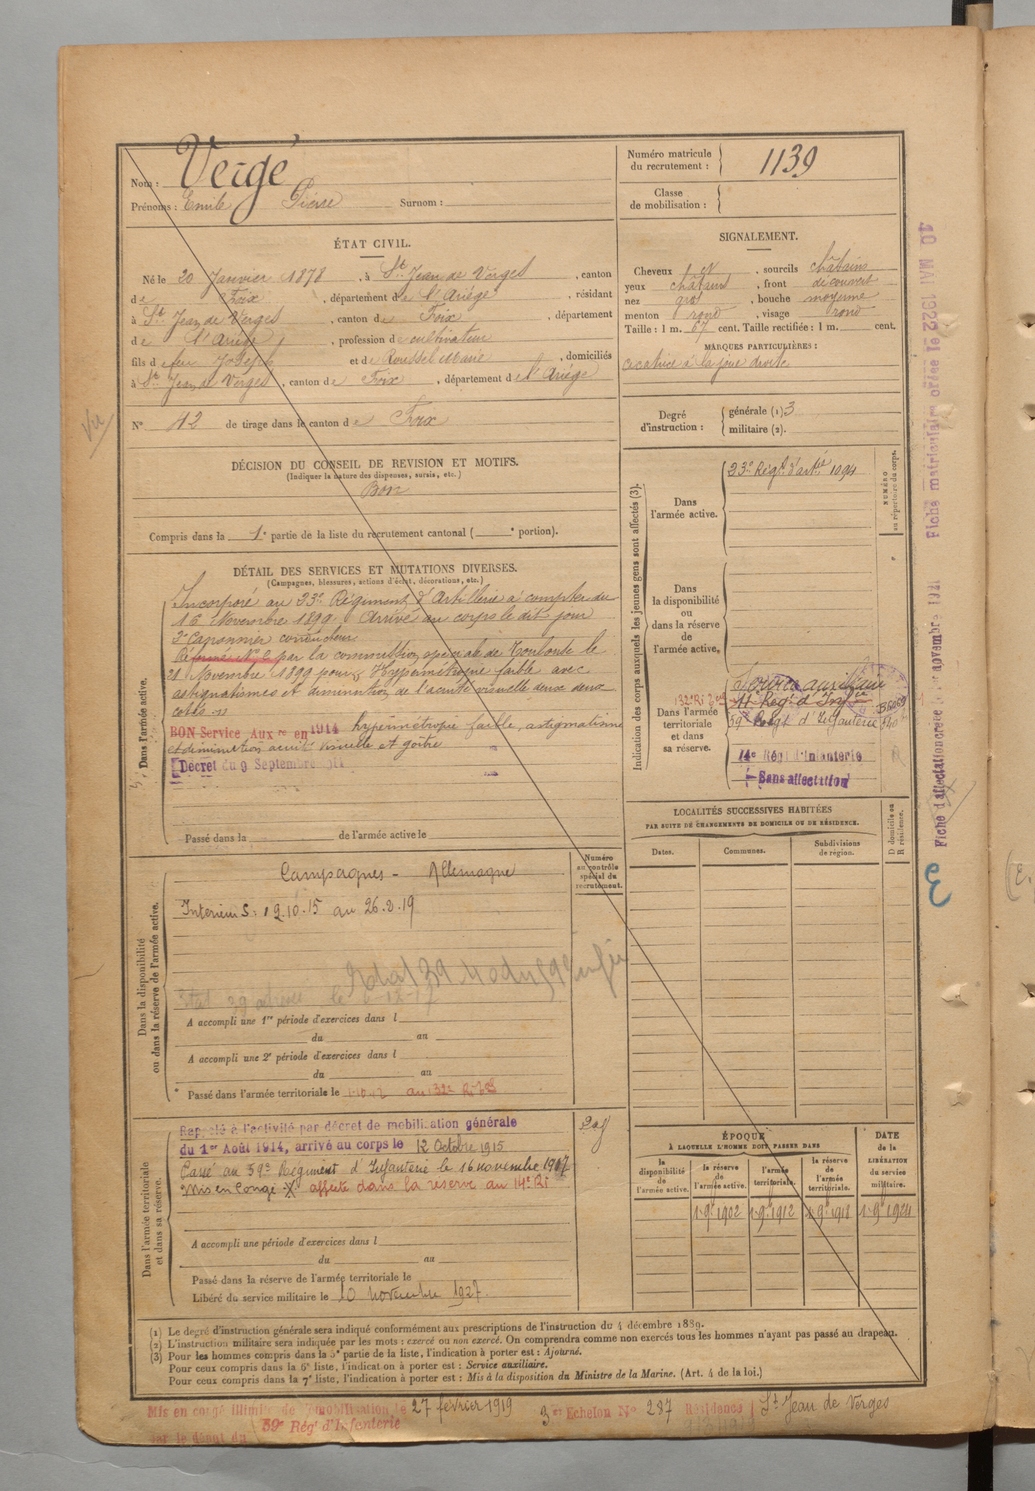 Nom : Vergé
Prénoms : Emile Pierre Surnom :
Numéro matricule du recrutement : 1139
Classe de mobilisation :
ÉTAT CIVIL.
Né le 20 Janvier 1878, à St Jean de Verges, canton
de Foix, département de l'Ariége, résidant
à St Jean de Verges, canton de Foix, département
de l'Ariége, profession de cultivateur
fils de feu Joseph et de Roussel Marie, domiciliés
à St Jean de Verges, canton de Foix, département de l'Ariége
N° 42 de tirage dans le canton de Foix
DÉCISION DU CONSEIL DE REVISION ET MOTIFS.
(Indiquer la nature des dispenses, sursis, etc.)
Bon
Compris dans la 1e partie de la liste du recrutement cantonal ( e portion).
SIGNALEMENT.
Cheveux et, sourcils châtains
yeux châtains, front découvert
nez gros, bouche moyenne
menton rond, visage rond
Taille : 1 m. 67 cent. Taille rectifiée : 1 m. cent.
MARQUES PARTICULIÈRES :
cicatrice à la joue droite
Degré d'instruction : générale (1) 3
militaire (2).
DÉTAIL DES SERVICES ET MUTATIONS DIVERSES.
(Campagnes, blessures, actions d'éclat, décorations, etc.)
Dans l'armée active.
Incorporé au 23e Régiment d'Artillerie à compter du
16 Novembre 1899. Arrivé au corps le dit jour
2e Canonnier conducteur
Réformé N° 2 par la commission spéciale de Toulouse le
21 Novembre 1899 pour Hypermétropie faible avec
astigmatismes et diminution de l'acuité visuelle deux deux
cotés
BON Service Auxre en 1914 hypermétropie faible, astigmatisme
et diminution acuité visuelle et goître
Décret du 9 Septembre 1914
Passé dans la de l'armée active le
Indication des corps auxquels les jeunes gens sont affectés (3).
NUMÉRO au répertoire du corps.
Dans l'armée active. 23e Régt d'artie 1094
Dans la disponibilité ou dans la réserve de l'armée active.
Dans l'armée territoriale et dans sa réserve.
Service auxiliaire
132e Ri
Régt d'Infie
59e Régt d'Infanterie
14e Régt d'Infanterie
Sans affectation
LOCALITÉS SUCCESSIVES HABITÉES
PAR SUITE DE CHANGEMENTS DE DOMICILE OU DE RÉSIDENCE.
Dates. Communes. Subdivisions de région. D domicile ou R résidence.
Dans la disponibilité ou dans la réserve de l'armée active.
Numéro au contrôle spécial du recrutement.
Campagnes - Allemagne
Intérieur S : 12.10.15 au 26.2.19
A accompli une 1re période d'exercices dans l
du au
A accompli une 2e période d'exercices dans l
du au
Passé dans l'armée territoriale le 1-10-12 au 132e
Dans l'armée territoriale et dans sa réserve.
Rappelé à l'activité par décret de mobilisation générale
du 1er Août 1914, arrivé au corps le 12 Octobre 1915
Passé au 59e Régiment d'Infanterie le 16 novembre 1917
Mis en Congé X affecté dans la réserve au 14e Ri
A accompli une période d'exercices dans l
du au
Passé dans la réserve de l'armée territoriale le
Libéré du service militaire le 10 novembre 1927.
ÉPOQUE
À LAQUELLE L'HOMME DOIT PASSER DANS
la disponibilité de l'armée active. la réserve de l'armée active. l'armée territoriale. la réserve de l'armée territoriale.
DATE de la LIBÉRATION du service militaire.
1 9e 1902 1 9e 1912 1 9e 1918 1 9e 1924
(1) Le degré d'instruction générale sera indiqué conformément aux prescriptions de l'instruction du 4 décembre 1889.
(2) L'instruction militaire sera indiquée par les mots : exercé ou non exercé. On comprendra comme non exercés tous les hommes n'ayant pas passé au drapeau.
(3) Pour les hommes compris dans la 5e partie de la liste, l'indication à porter est : Ajourné.
Pour ceux compris dans la 6e liste, l'indication à porter est : Service auxiliaire.
Pour ceux compris dans la 7e liste, l'indication à porter est : Mis à la disposition du Ministre de la Marine. (Art. 4 de la loi.)
Mis en congé illimité de démobilisation le 27 février 1919 3e Echelon N° 287 Résidence St Jean de Verges
par le dépôt du 59e Régt d'Infanterie
Fiche matriculaire créée le 10 MAI 1922
Fiche d'affectation créée le novembre 1921
Vu